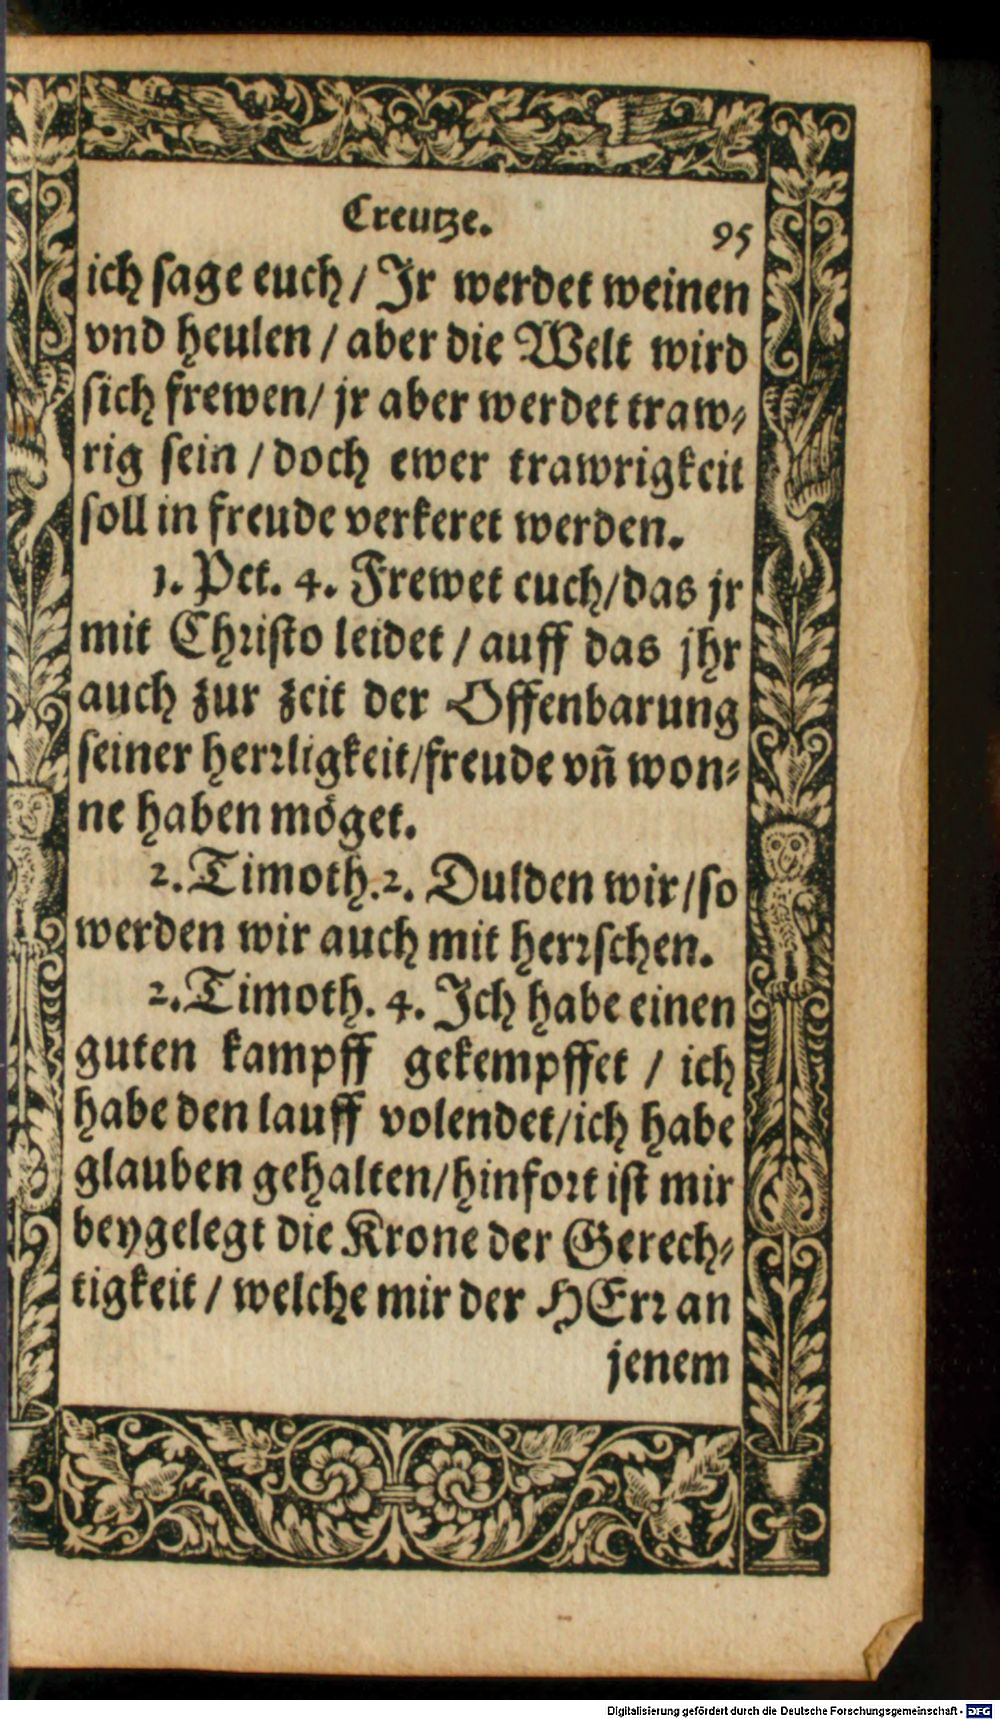 Creutze.
95
ich sage euch / Jr werdet weinen
vnd heulen / aber die Welt wird
sich frewen / jr aber werdet traw⸗
rig sein / doch ewer trawrigkeit
soll in freude verkeret werden.
1. Pet. 4. Frewet euch / das jr
mit Christo leidet / auff das jhr
auch zur zeit der Offenbarung
seiner herrligkeit / freude vñ won⸗
ne haben möget.
2. Timoth. 2. Dulden wir / so
werden wir auch mit herrschen.
2. Timoth. 4. Jch habe einen
guten kampff gekempffet / ich
habe den lauff volendet / ich habe
glauben gehalten / hinfort ist mir
beygelegt die Krone der Gerech⸗
tigkeit / welche mir der HErr an
jenem
Digitalisierung gefördert durch die Deutsche Forschungsgemeinschaft - DFG